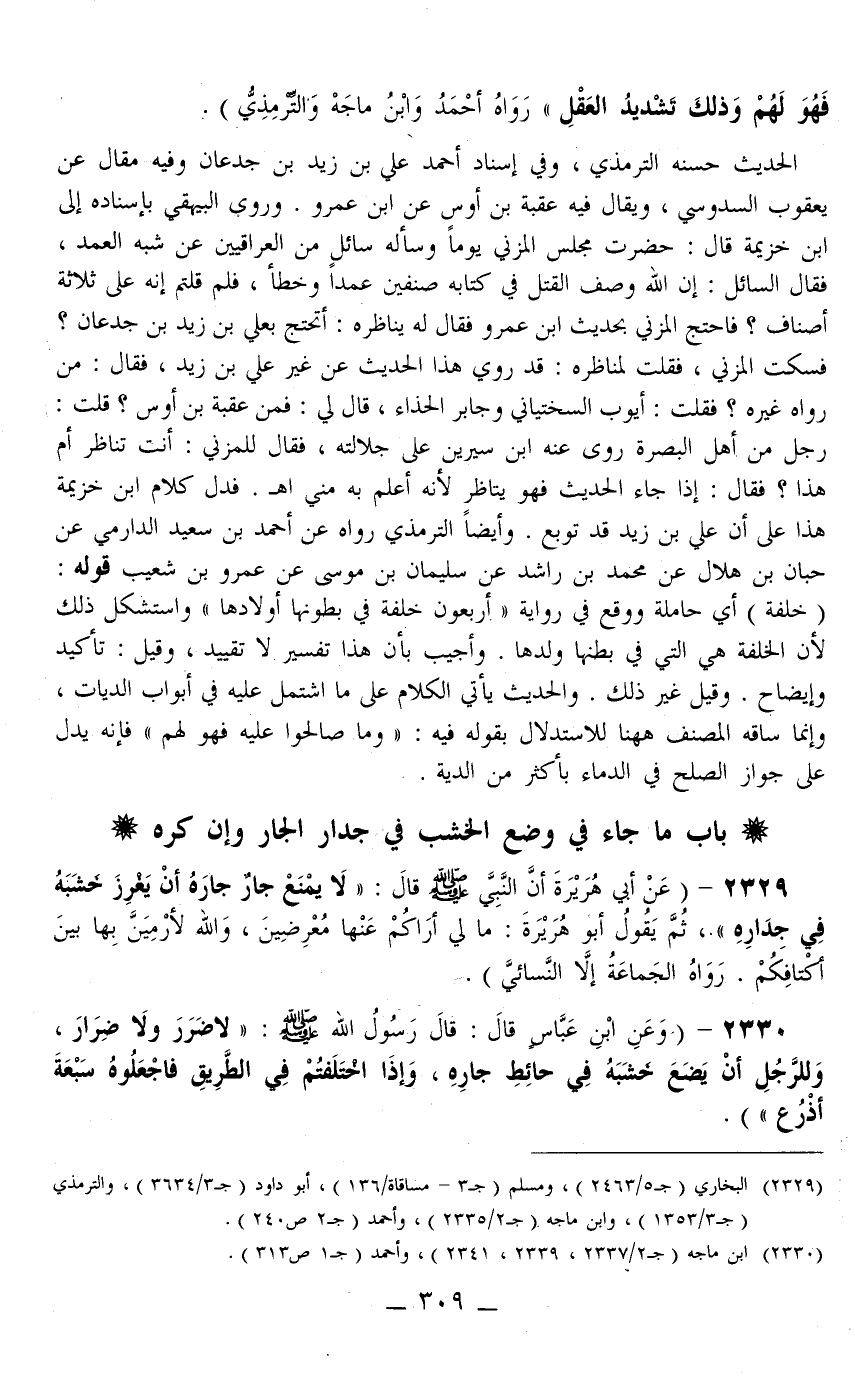 فَهُوَ لَهُمْ وَذلكَ تَشْديدُ العَقْلِ » رَوَاهُ أحْمَدُ وَابْنُ ماجَهْ وَالتِّرْمِذِيُّ ) .
الحديث حسنه الترمذي ، وفي إسناد أحمد علي بن زيد بن جدعان وفيه مقال عن
يعقوب السدوسي ، ويقال فيه عقبة بن أوس عن ابن عمرو . وروى البيهقي بإسناده إلى
ابن خزيمة قال : حضرت مجلس المزني يوماً وسأله سائل من العراقيين عن شبه العمد ،
فقال السائل : إن الله وصف القتل في كتابه صنفين عمداً وخطأ ، فلم قلتم إنه على ثلاثة
أصناف ؟ فاحتج المزني بحديث ابن عمرو فقال له يناظره : أتحتج بعلي بن زيد بن جدعان ؟
فسكت المزني ، فقلت لمناظره : قد روي هذا الحديث عن غير علي بن زيد ، فقال : من
رواه غيره ؟ فقلت : أيوب السختياني وجابر الحذاء ، قال لي : فمن عقبة بن أوس ؟ قلت :
رجل من أهل البصرة روى عنه ابن سيرين على جلالته ، فقال للمزني : أنت تناظر أم
هذا ؟ فقال : إذا جاء الحديث فهو يتاظر لأنه أعلم به مني اهـ . فدل كلام ابن خزيمة
هذا على أن علي بن زيد قد توبع . وأيضاً الترمذي رواه عن أحمد بن سعيد الدارمي عن
حبان بن هلال عن محمد بن راشد عن سليمان بن موسى عن عمرو بن شعيب قوله :
( خلفة ) أي حاملة ووقع في رواية « أربعون خلفة في بطونها أولادها » واستشكل ذلك
لأن الخلفة هي التي في بطنها ولدها . وأجيب بأن هذا تفسير لا تقييد ، وقيل : تأكيد
وإيضاح . وقيل غير ذلك . والحديث يأتي الكلام على ما اشتمل عليه في أبواب الديات ،
وإنما ساقه المصنف ههنا للاستدلال بقوله فيه : « وما صالحوا عليه فهو لهم » فإنه يدل
على جواز الصلح في الدماء بأكثر من الدية .
✸ باب ما جاء في وضع الخشب في جدار الجار وإن كره ✸
٢٣٢٩ – ( عَنْ أبي هُرَيْرَةَ أنَّ النَّبيَّ ﷺ قالَ : « لَا يمْنَعْ جارٌ جارَهُ أنْ يَغْرِزَ خَشَبَهُ
فِي جِدَارِهِ » ، ثُمَّ يَقُولُ أبو هُرَيْرَةَ : ما لي أرَاكُمْ عَنْها مُعْرِضِينَ ، وَالله لأرْمِيَنَّ بِها بينَ
أكْتافِكُمْ . رَوَاهُ الجَماعَةُ إلَّا النَّسائيَّ ) .
٢٣٣٠ – ( وَعَنِ ابْنِ عَبَّاسٍ قالَ : قالَ رَسُولُ الله ﷺ : « لاضَرَرَ ولَا ضِرَارَ ،
وَللرَّجُلِ أنْ يَضَعَ خَشَبَهُ فِي حائِطِ جارِهِ ، وَإذَا اخْتَلَفتُمْ فِي الطَّرِيقِ فاجْعَلُوهُ سَبْعَةَ
أذْرُعٍ » ) .
(٢٣٢٩) البخاري ( جـ٢٤٦٣/٥ ) ، ومسلم ( جـ٣ – مساقاة/١٣٦ ) ، أبو داود ( جـ٣٦٣٤/٣ ) ، والترمذي
( جـ١٣٥٣/٣ ) ، وابن ماجه ( جـ٢٣٣٥/٢ ) ، وأحمد ( جـ٢ ص٢٤٠ ) .
(٢٣٣٠) ابن ماجه ( جـ٢٣٣٧/٢ ، ٢٣٣٩ ، ٢٣٤١ ) ، وأحمد ( جـ١ ص٣١٣ ) .
— ٣٠٩ —